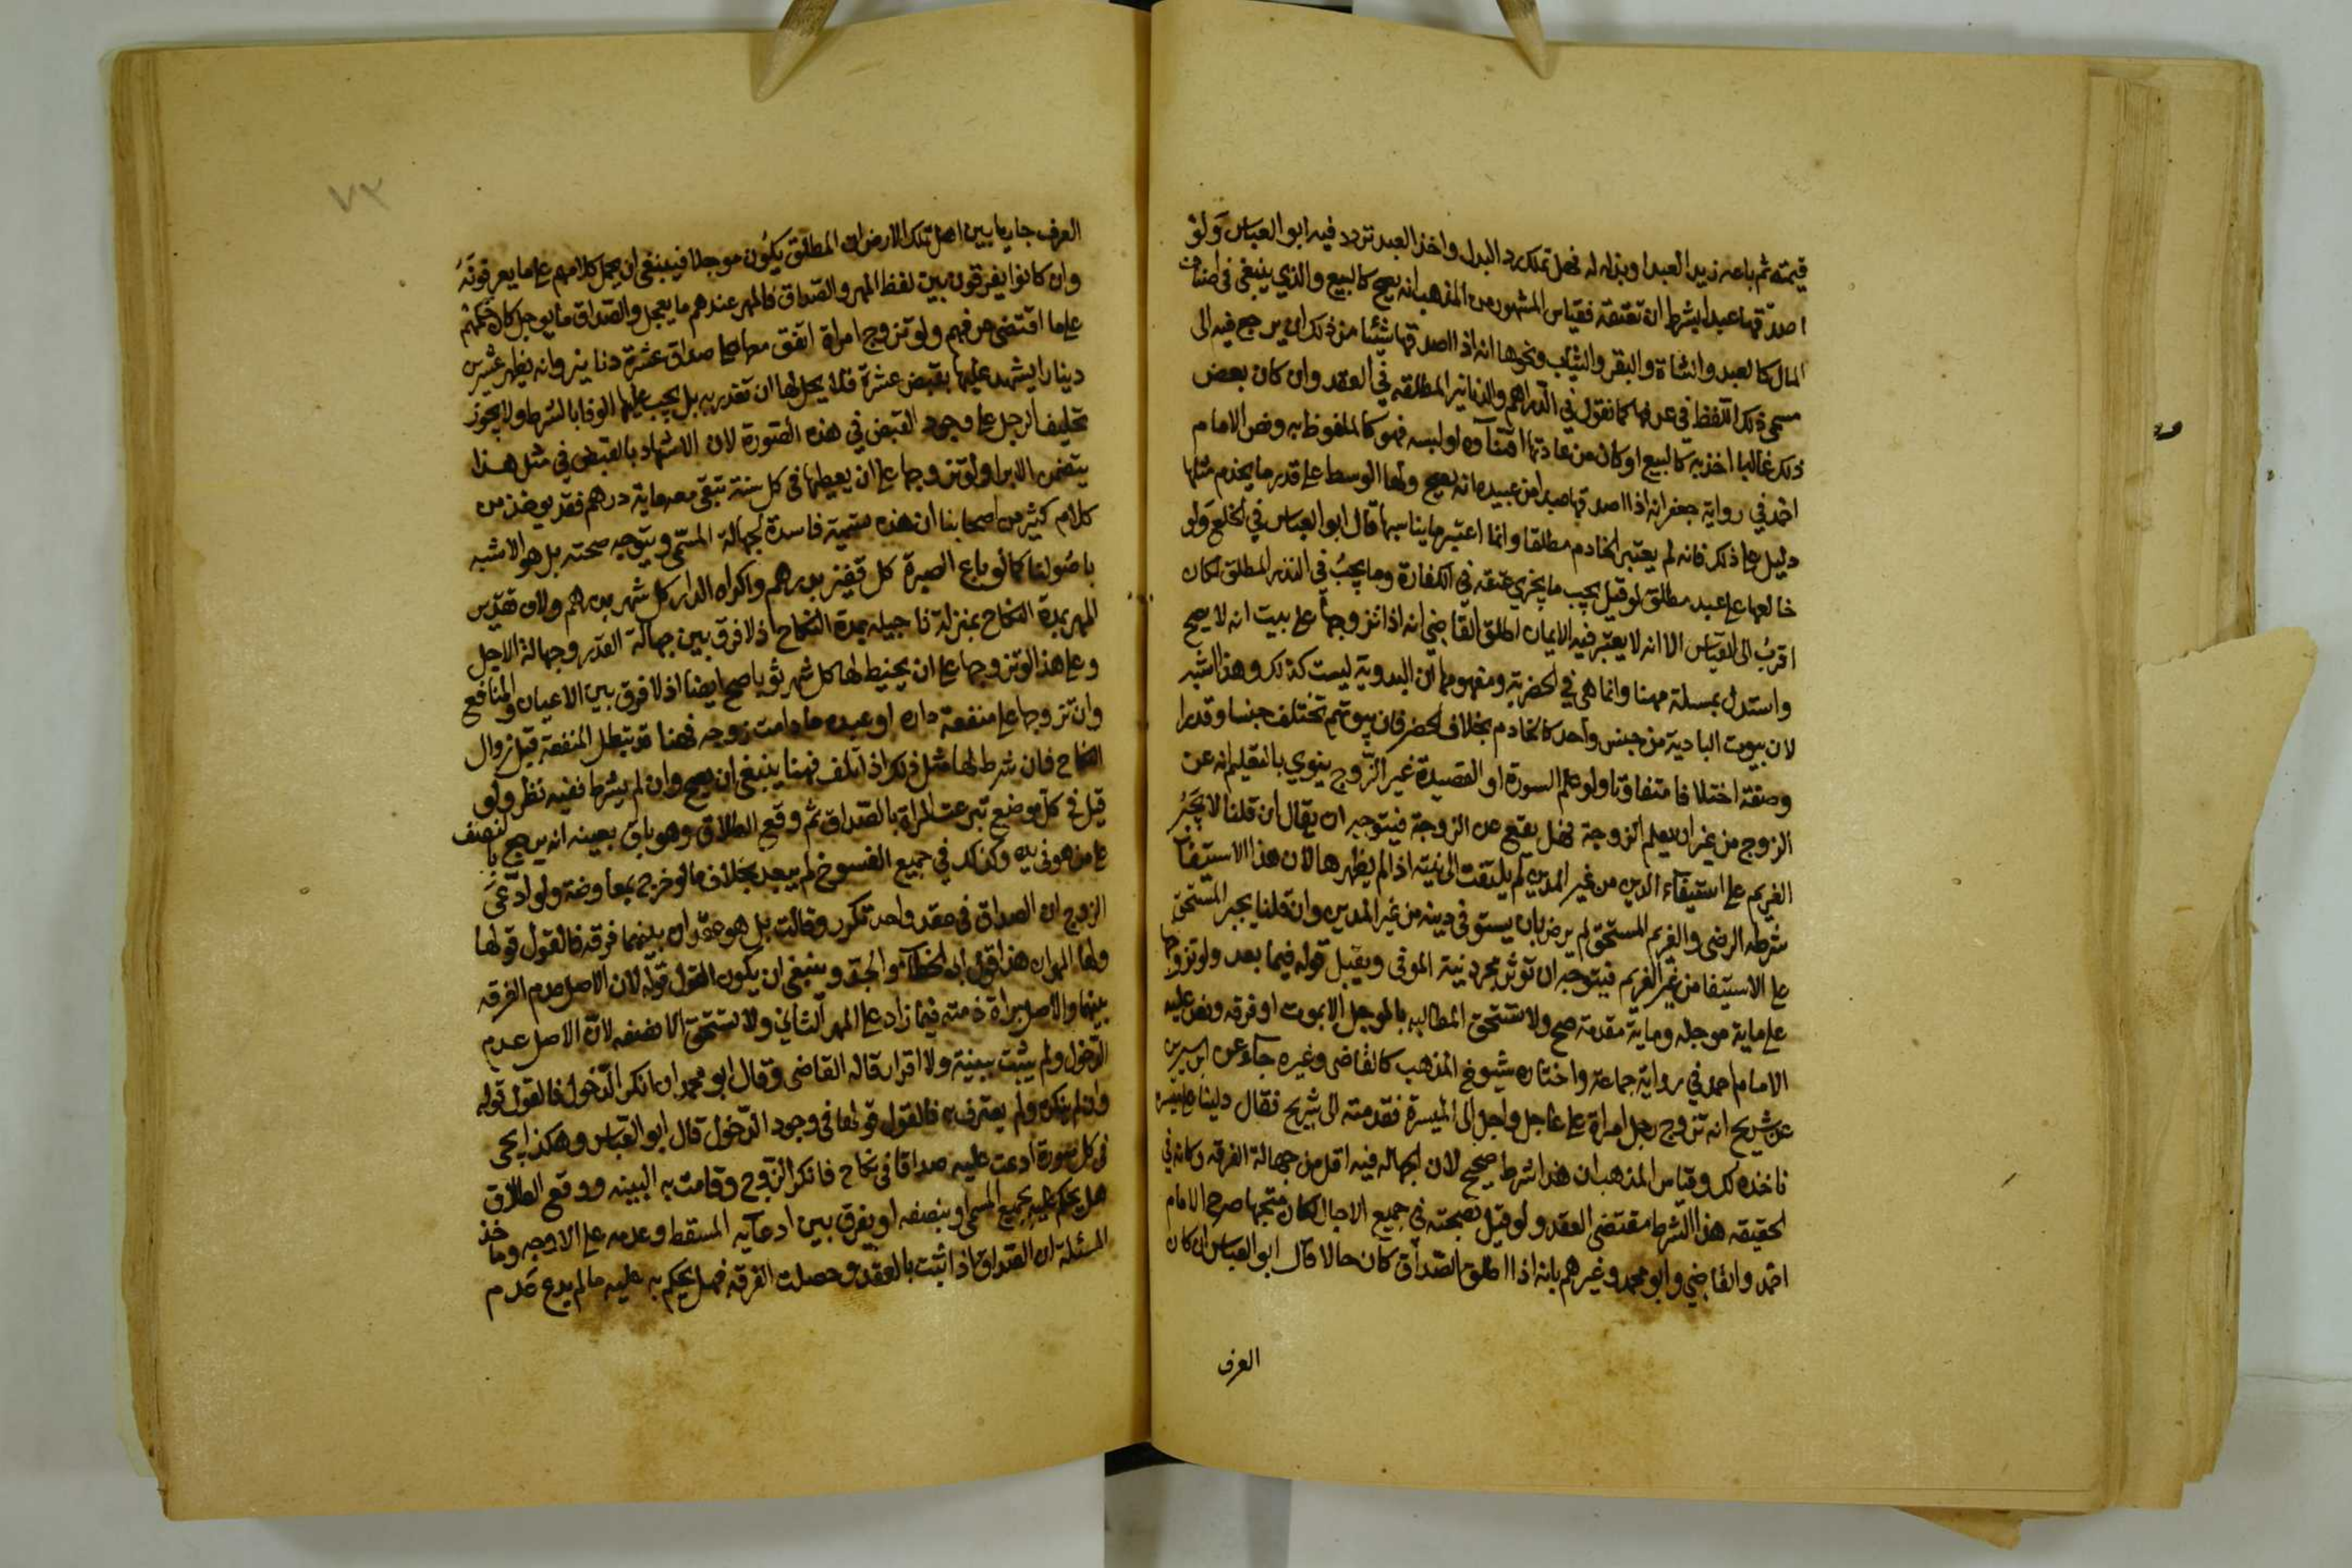 قيمته ثم باعه زيد العبد او بذله له فهل تملك رد البدل واخذ العبد تردد فيه ابو العباس ولو
اصدقها عبدا بشرط ان تعتقه فقياس المشهور من المذهب انه يصح كالبيع والذي ينبغي في اصناف
المال كالعبد والشاة والبقر والثياب ونحوها انه اذا اصدقها شئا من ذلك ان يرجع فيه الى
مسمى ذلك اللفظ في عرفها كما نقول في الدراهم والدنانير المطلقه في العقد وان كان بعض
ذلك غالبا اخذ به كالبيع او كان من عادتها اقتناؤه او لبسه فهو كالملفوظ به ونص الامام
احمد في رواية جعفر انه اذا اصدقها عبدا من عبيده انه يصح ولها الوسط على قدر ما يخدم مثلها
دليل على ذلك فانه لم يعتبر الخادم مطلقا وانما اعتبر ما يناسبها قال ابو العباس في الخلع ولو
خالعها على عبد مطلق لو قيل يجب ما يجزي عتقه في الكفارة وما يجب في النذر المطلق لكان
اقرب الى القياس الا انه لا يعتبر فيه الايمان اطلق القاضي انه اذا تزوجها على بيت انه لا يصح
واستدل بمسلة مهنا وانما هي في الحضرية ومفهومها ان البدوية ليست كذلك وهذا اشبه
لان بيوت البادية من جنس واحد كالخادم بخلاف الحضر فان بيوتهم تختلف جنسا وقدرا
وصفة اختلافا متفاوتا ولو علم السورة او القصيدة غير الزوج ينوي بالتعليم انه عن
الزوج من غير ان يعلم الزوجة فهل يقع عن الزوجة فيتوجه ان يقال ان قلنا لا يجبر
الغريم على استيفاء الدين من غير المدين لم يلتفت الى نيته اذا لم يظهرها لان هذا الاستيفاء
شرطه الرضى والغريم المستحق لم يرض بان يستوفي دينه من غير المدين وان قلنا يجبر المستحق
على الاستيفا من غير الغريم فيتوجه ان تؤثر مجرد نية الموفي ويقبل قوله فيما بعد ولو تزوجها
على ماية موجله وماية مقدمة صح ولا تستحق المطالبه بالموجل الا بموت او فرقه ونص عليه
الامام احمد في رواية جماعة واختاره شيوخ المذهب كالقاضي وغيره جاء عن ابن سيرين
عن شريح انه تزوج رجل امراة على عاجل واجل الى الميسرة فقدمته الى شريح فقال دلينا على ميسرة
ناخذه لك وقياس المذهب ان هذا شرط صحيح لان الجهاله فيه اقل من جهالة الفرقه وكانه في
الحقيقه هذا الشرط مقتضى العقد ولو قيل بصحته في جميع الاجال لكان متجها صرح الامام
احمد والقاضي وابو محمد وغيرهم بانه اذا اطلق الصداق كان حالا قال ابو العباس ان كان
العرف
العرف جاريا بين اهل تلك الارض ان المطلق يكون موجلا فينبغي ان يحمل كلامهم على ما يعرفونه
وان كانوا يفرقون بين لفظ المهر والصداق فالمهر عندهم ما يعجل والصداق ما يوجل كان حكمهم
على ما اقتضى عرفهم ولو تزوج امراة اتفق معها على صداق عشرة دنانير وانه يظهر عشرين
دينارا يشهد عليها بقبض عشرة فلا يحل لها ان تغدر به بل يجب عليها الوفا بالشرط ولا يجوز
تحليف الرجل على وجود القبض في هذه الصورة لان الاشهاد بالقبض في مثل هذا
يتضمن الابرا ولو تزوجها على ان يعطيها في كل سنة تبقى معه ماية درهم فقد يوخذ من
كلام كثير من اصحابنا ان هذه تسمية فاسدة لجهالة المسمى ويتوجه صحته بل هو الاشبه
باصولنا كما لو باع الصبرة كل قفيز بدرهم واكراه الدار كل شهر بدرهم ولان تقدير
المهر بمدة النكاح بمنزلة تاجيله بمدة النكاح اذ لا فرق بين جهالة القدر وجهالة الاجل
وعلى هذا لو تزوجها على ان يخيط لها كل شهر ثوبا صح ايضا اذ لا فرق بين الاعيان والمنافع
وان تزوجها على منفعة داره او عبده ما دامت زوجه فهنا قد تبطل المنفعة قبل زوال
النكاح فان شرط لها مثل ذلك اذا تلف فهنا ينبغي ان يصح وان لم يشرط ففيه نظر ولو
قيل في كل موضع تبرعت المراة بالصداق ثم وقع الطلاق وهو باق بعينه انه يرجع بالنصف
على من هو في يده وكذلك في جميع الفسوخ لم يبعد بخلاف ما لو خرج بمعاوضة ولو ادعى
الزوج ان الصداق في عقد واحد تكرر وقالت بل هو عقدان بينهما فرقة فالقول قولها
ولها المهران هذا قول ابي الخطاب والجد وينبغي ان يكون القول قوله لان الاصل عدم الفرقه
بينهما والاصل براة ذمته فيما زاد على المهر الثاني ولا تستحق الا نصفه لان الاصل عدم
الدخول ولم يثبت ببينة ولا اقرار قاله القاضي وقال ابو محمد ان انكر الدخول فالقول قوله
وان لم ينكره ولم يعترف به فالقول قولها في وجود الدخول قال ابو العباس وهكذا يجي
في كل صورة ادعت عليه صداقا في نكاح فانكر الزوج وقامت به البينه ووقع الطلاق
هل يحكم عليه بجميع المسمى او بنصفه او يفرق بين ادعايه المسقط وعدمه على الاوجه وماخذ
المسئلة ان الصداق اذا ثبت بالعقد وحصلت الفرقه فهل يحكم به عليه ما لم يدع عدم